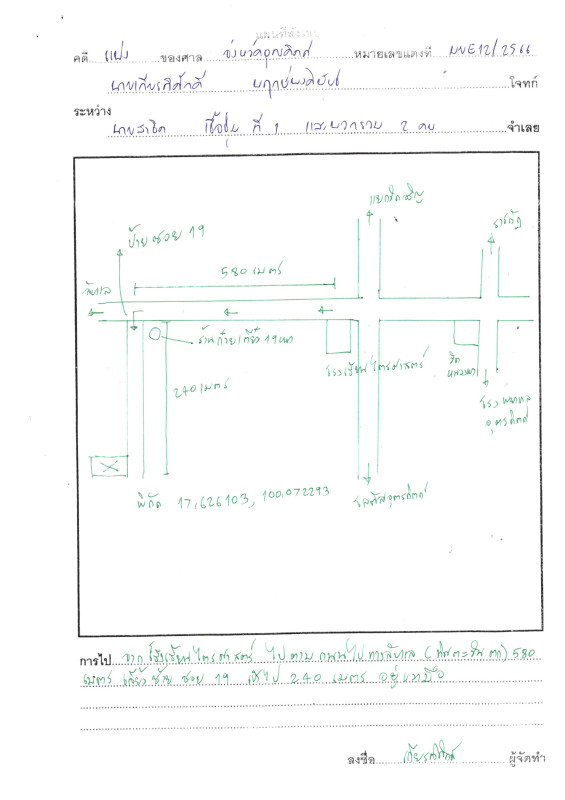 แผนที่สังเขป
คดี แพ่ง ของศาล จังหวัดอุตรดิตถ์ หมายเลขแดงที่ ผบE12/2566
นายเกียรติศักดิ์ โจทก์
ระหว่าง
นายสาธิต ที่ 1 และพวกรวม 2 คน จำเลย
แยกวังสีสูบ
ราชภัฏ
ป้ายซอย 19
580 เมตร
ลับแล
ร้านก๋วยเตี๋ยว
240 เมตร
โรงเรียนไตรศาสตร์
วัด
โรงพยาบาล
อุตรดิตถ์
พิกัด 17.626103, 100.072293
โลตัสอุตรดิตถ์
การไป จากโรงเรียนไตรศาสตร์ ไปตามถนนไปทางลับแล (ทิศตะวันตก) 580
เมตร เลี้ยวซ้าย ซอย 19 เข้าไป 240 เมตร อยู่ขวามือ
ลงชื่อ เกียรติศักดิ์ ผู้จัดทำ